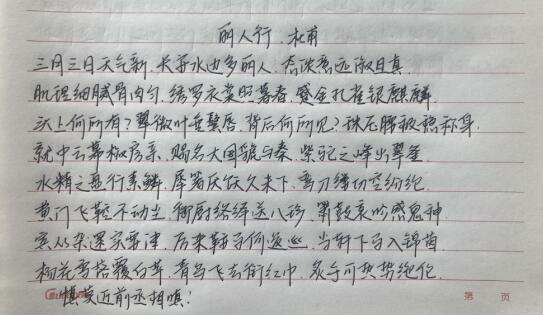 丽人行.杜甫
三月三日天气新.长安水边多丽人.态浓意远淑且真.
肌理细腻骨肉匀.绣罗衣裳照暮春.蹙金孔雀银麒麟.
头上何所有?翠微叶垂鬓唇.背后何所见?珠压腰衱稳称身.
就中云幕椒房亲.赐名大国虢与秦.紫驼之峰出翠釜.
水精之盘行素鳞.犀箸厌饫久未下.鸾刀缕切空纷纶.
黄门飞鞚不动尘.御厨络绎送八珍.箫鼓哀吟感鬼神
宾从杂遝实要津.后来鞍马何逡巡.当轩下马入锦茵
杨花雪落覆白苹.青鸟飞去衔红巾.炙手可热势绝伦.
慎莫近前丞相嗔!
第 页